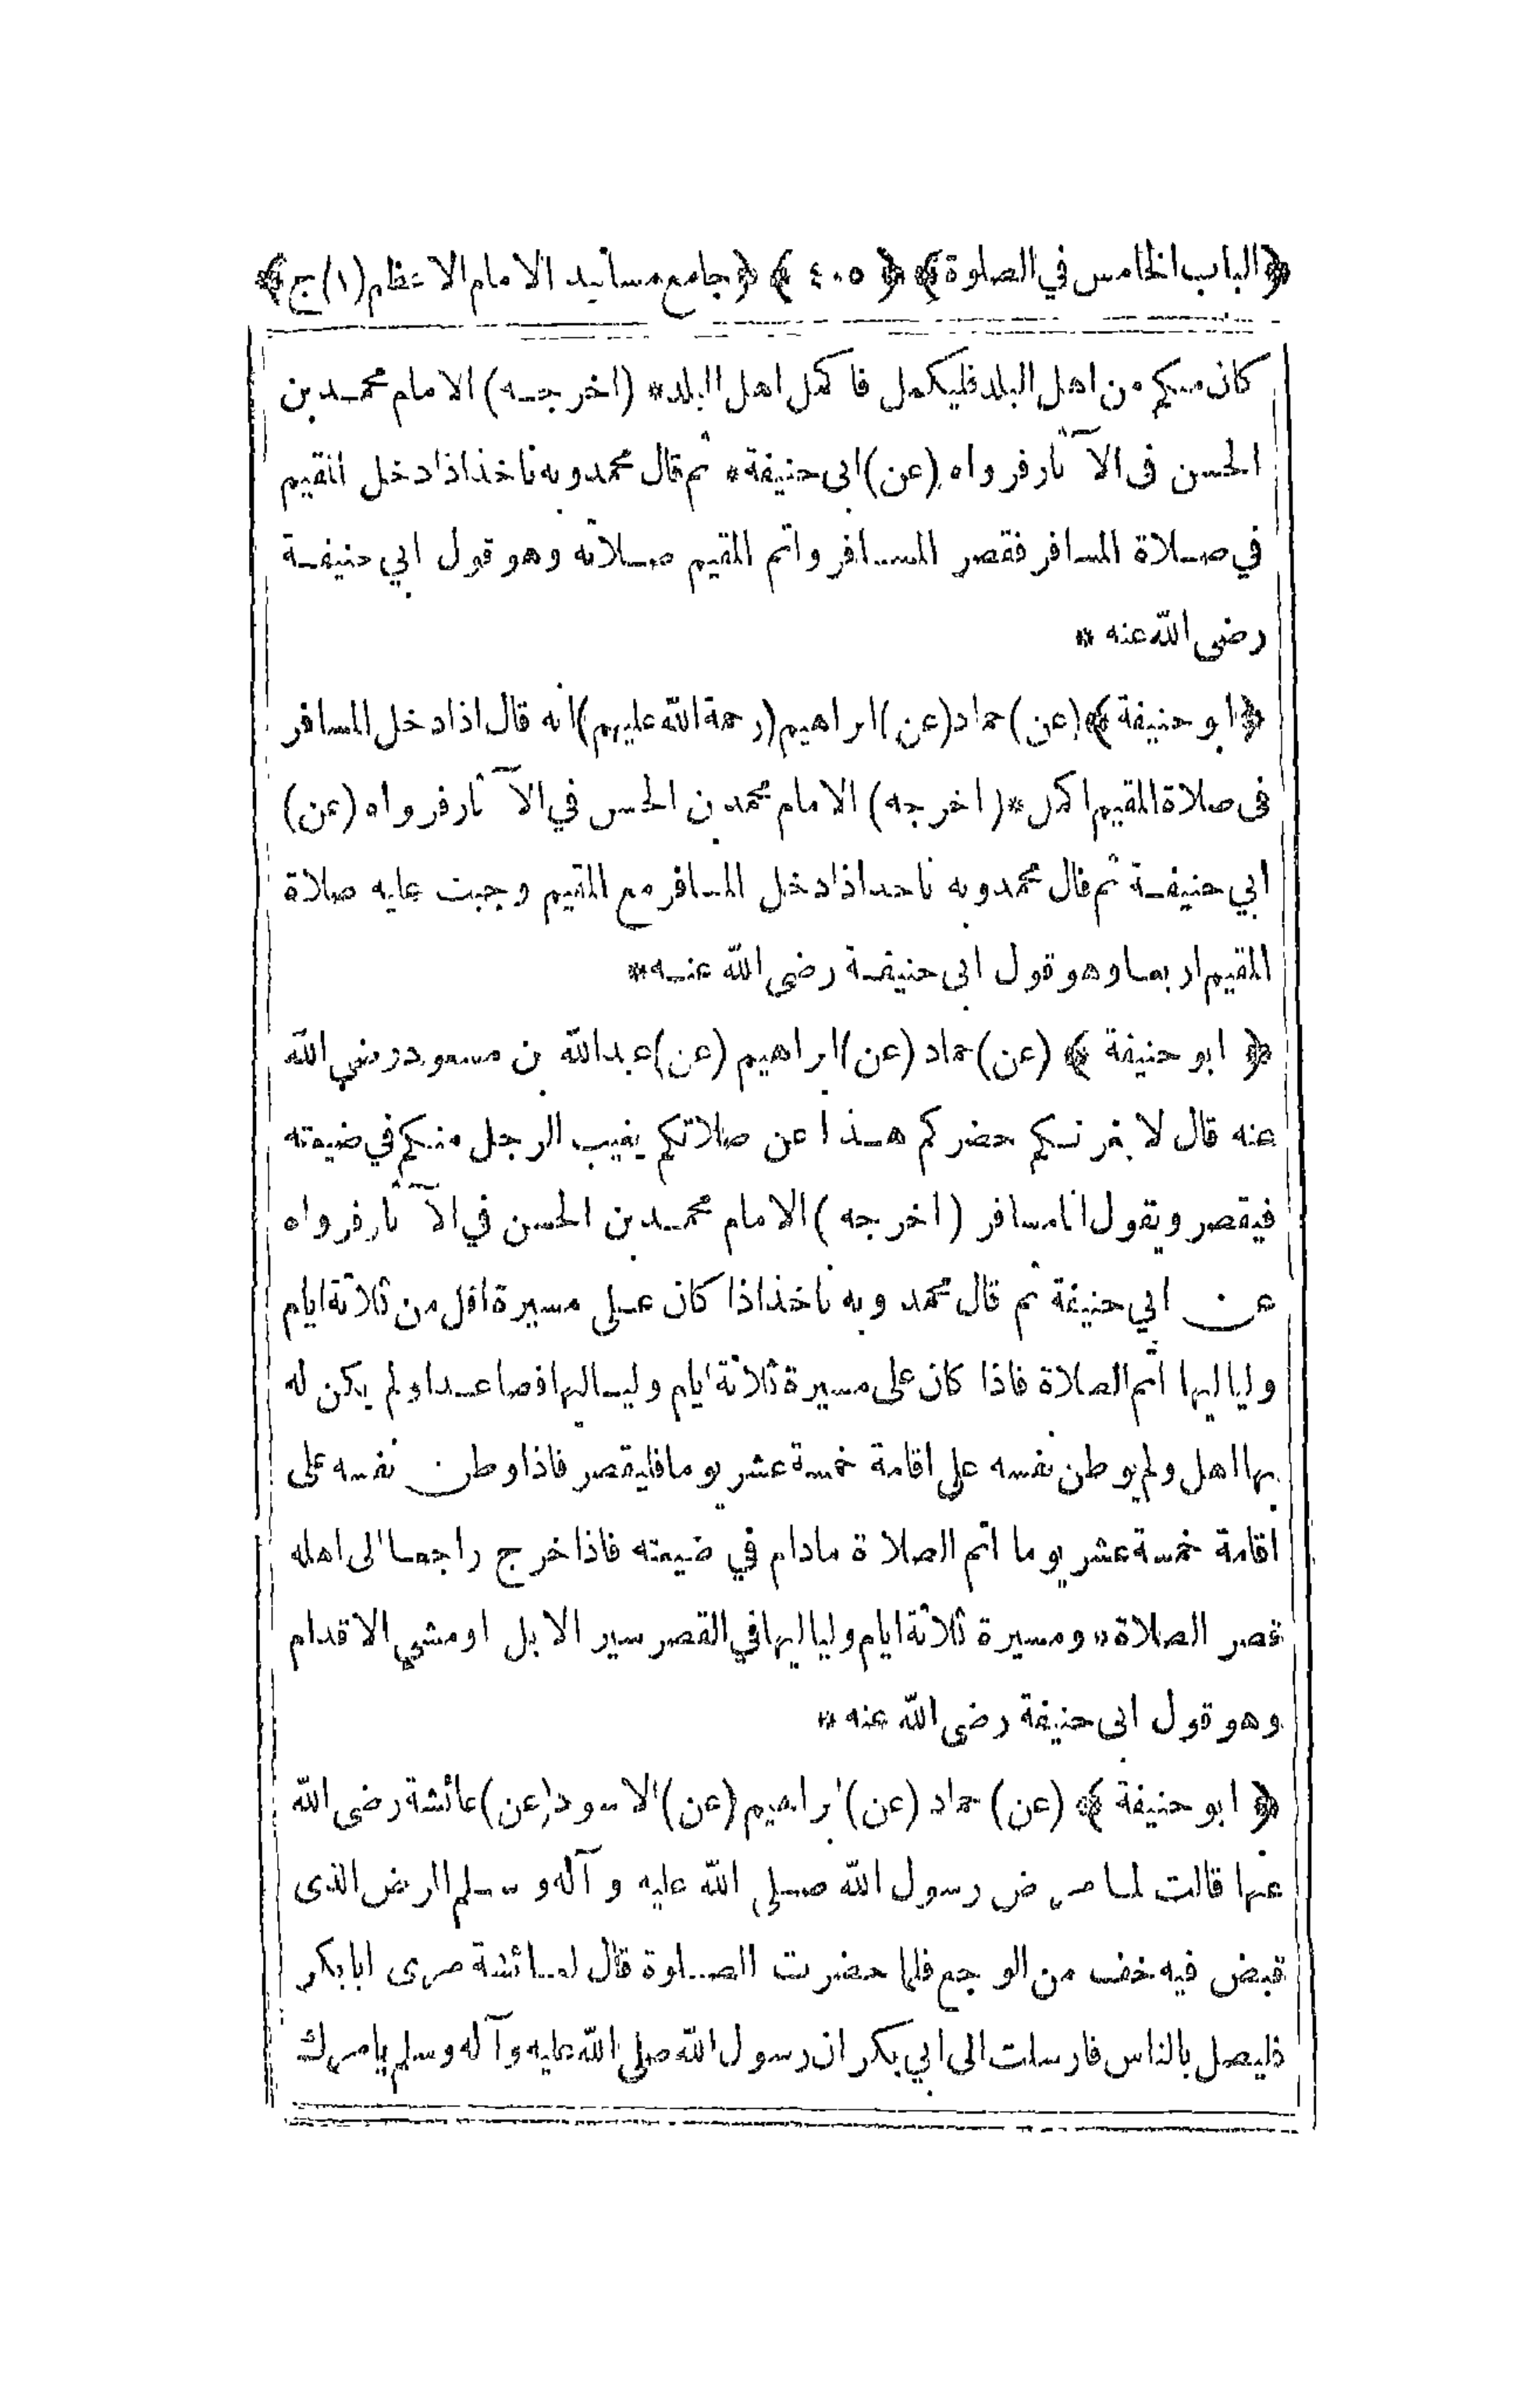 ﴿الباب الخامس في الصلوة﴾ ﴿ ٤٠٥ ﴾ ﴿جامع مسانيد الامام الاعظم (١) ج﴾
كان منكم من اهل البلد فليكمل فاكمل اهل البلد* (اخرجه) الامام محمد بن
الحسن فى الآثار فرواه (عن) ابى حنيفة* ثم قال محمد وبه ناخذ اذا دخل المقيم
في صلاة المسافر فقصر المسافر واتم المقيم صلاته وهو قول ابي حنيفة
رضى الله عنه *
﴿ابو حنيفة﴾ (عن) حماد (عن) ابراهيم (رحمة الله عليهم) انه قال اذا دخل المسافر
فى صلاة المقيم اكمل* (اخرجه) الامام محمد بن الحسن في الآثار فرواه (عن)
ابي حنيفة ثم قال محمد وبه ناخذ اذا دخل المسافر مع المقيم وجبت عليه صلاة
المقيم اربعا وهو قول ابى حنيفة رضى الله عنه*
﴿ ابو حنيفة ﴾ (عن) حماد (عن) ابراهيم (عن) عبد الله بن مسعود رضي الله
عنه قال لا يغرنكم حضركم هذا عن صلاتكم يغيب الرجل منكم في ضيعته
فيقصر ويقول انا مسافر (اخرجه) الامام محمد بن الحسن في الآثار فرواه
عن ابي حنيفة ثم قال محمد وبه ناخذ اذا كان على مسيرة اقل من ثلاثة ايام
ولياليها اتم الصلاة فاذا كان على مسيرة ثلاثة ايام ولياليها فصاعدا ولم يكن له
بها اهل ولم يوطن نفسه على اقامة خمسة عشر يوما فليقصر فاذا وطن نفسه على
اقامة خمسة عشر يوما اتم الصلاة مادام في ضيعته فاذا خرج راجعا الى اهله
قصر الصلاة* ومسيرة ثلاثة ايام ولياليها في القصر سير الابل او مشي الاقدام
وهو قول ابى حنيفة رضى الله عنه *
﴿ ابو حنيفة ﴾ (عن) حماد (عن) ابراهيم (عن) الاسود (عن) عائشة رضى الله
عنها قالت لما مرض رسول الله صلى الله عليه وآله وسلم المرض الذى
قبض فيه خف من الوجع فلما حضرت الصلوة قال لعائشة مرى ابابكر
فليصل بالناس فارسلت الى ابي بكر ان رسول الله صلى الله عليه وآله وسلم يامرك